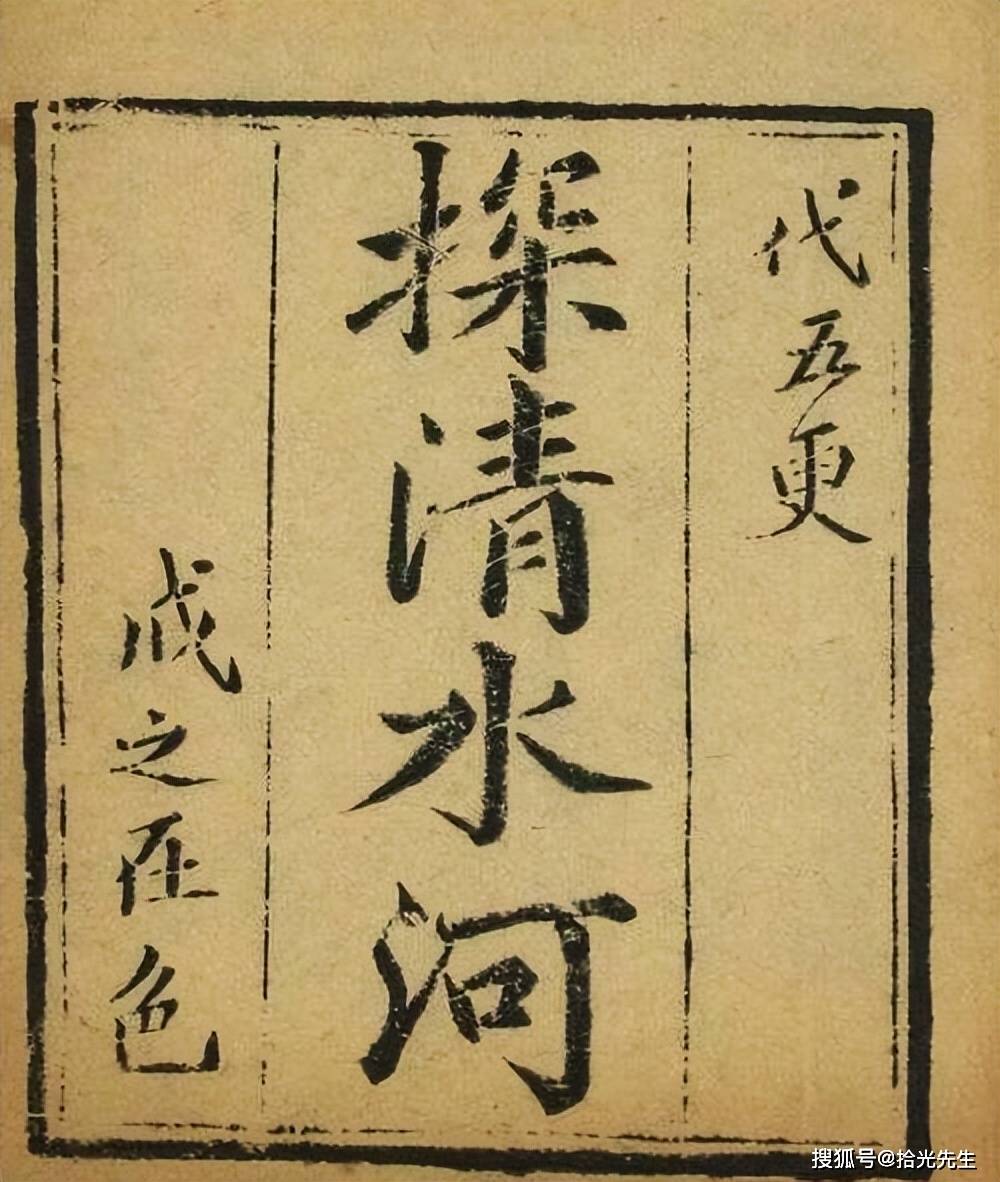 代五更
探清水河
戒之在色
搜狐号@拾光先生